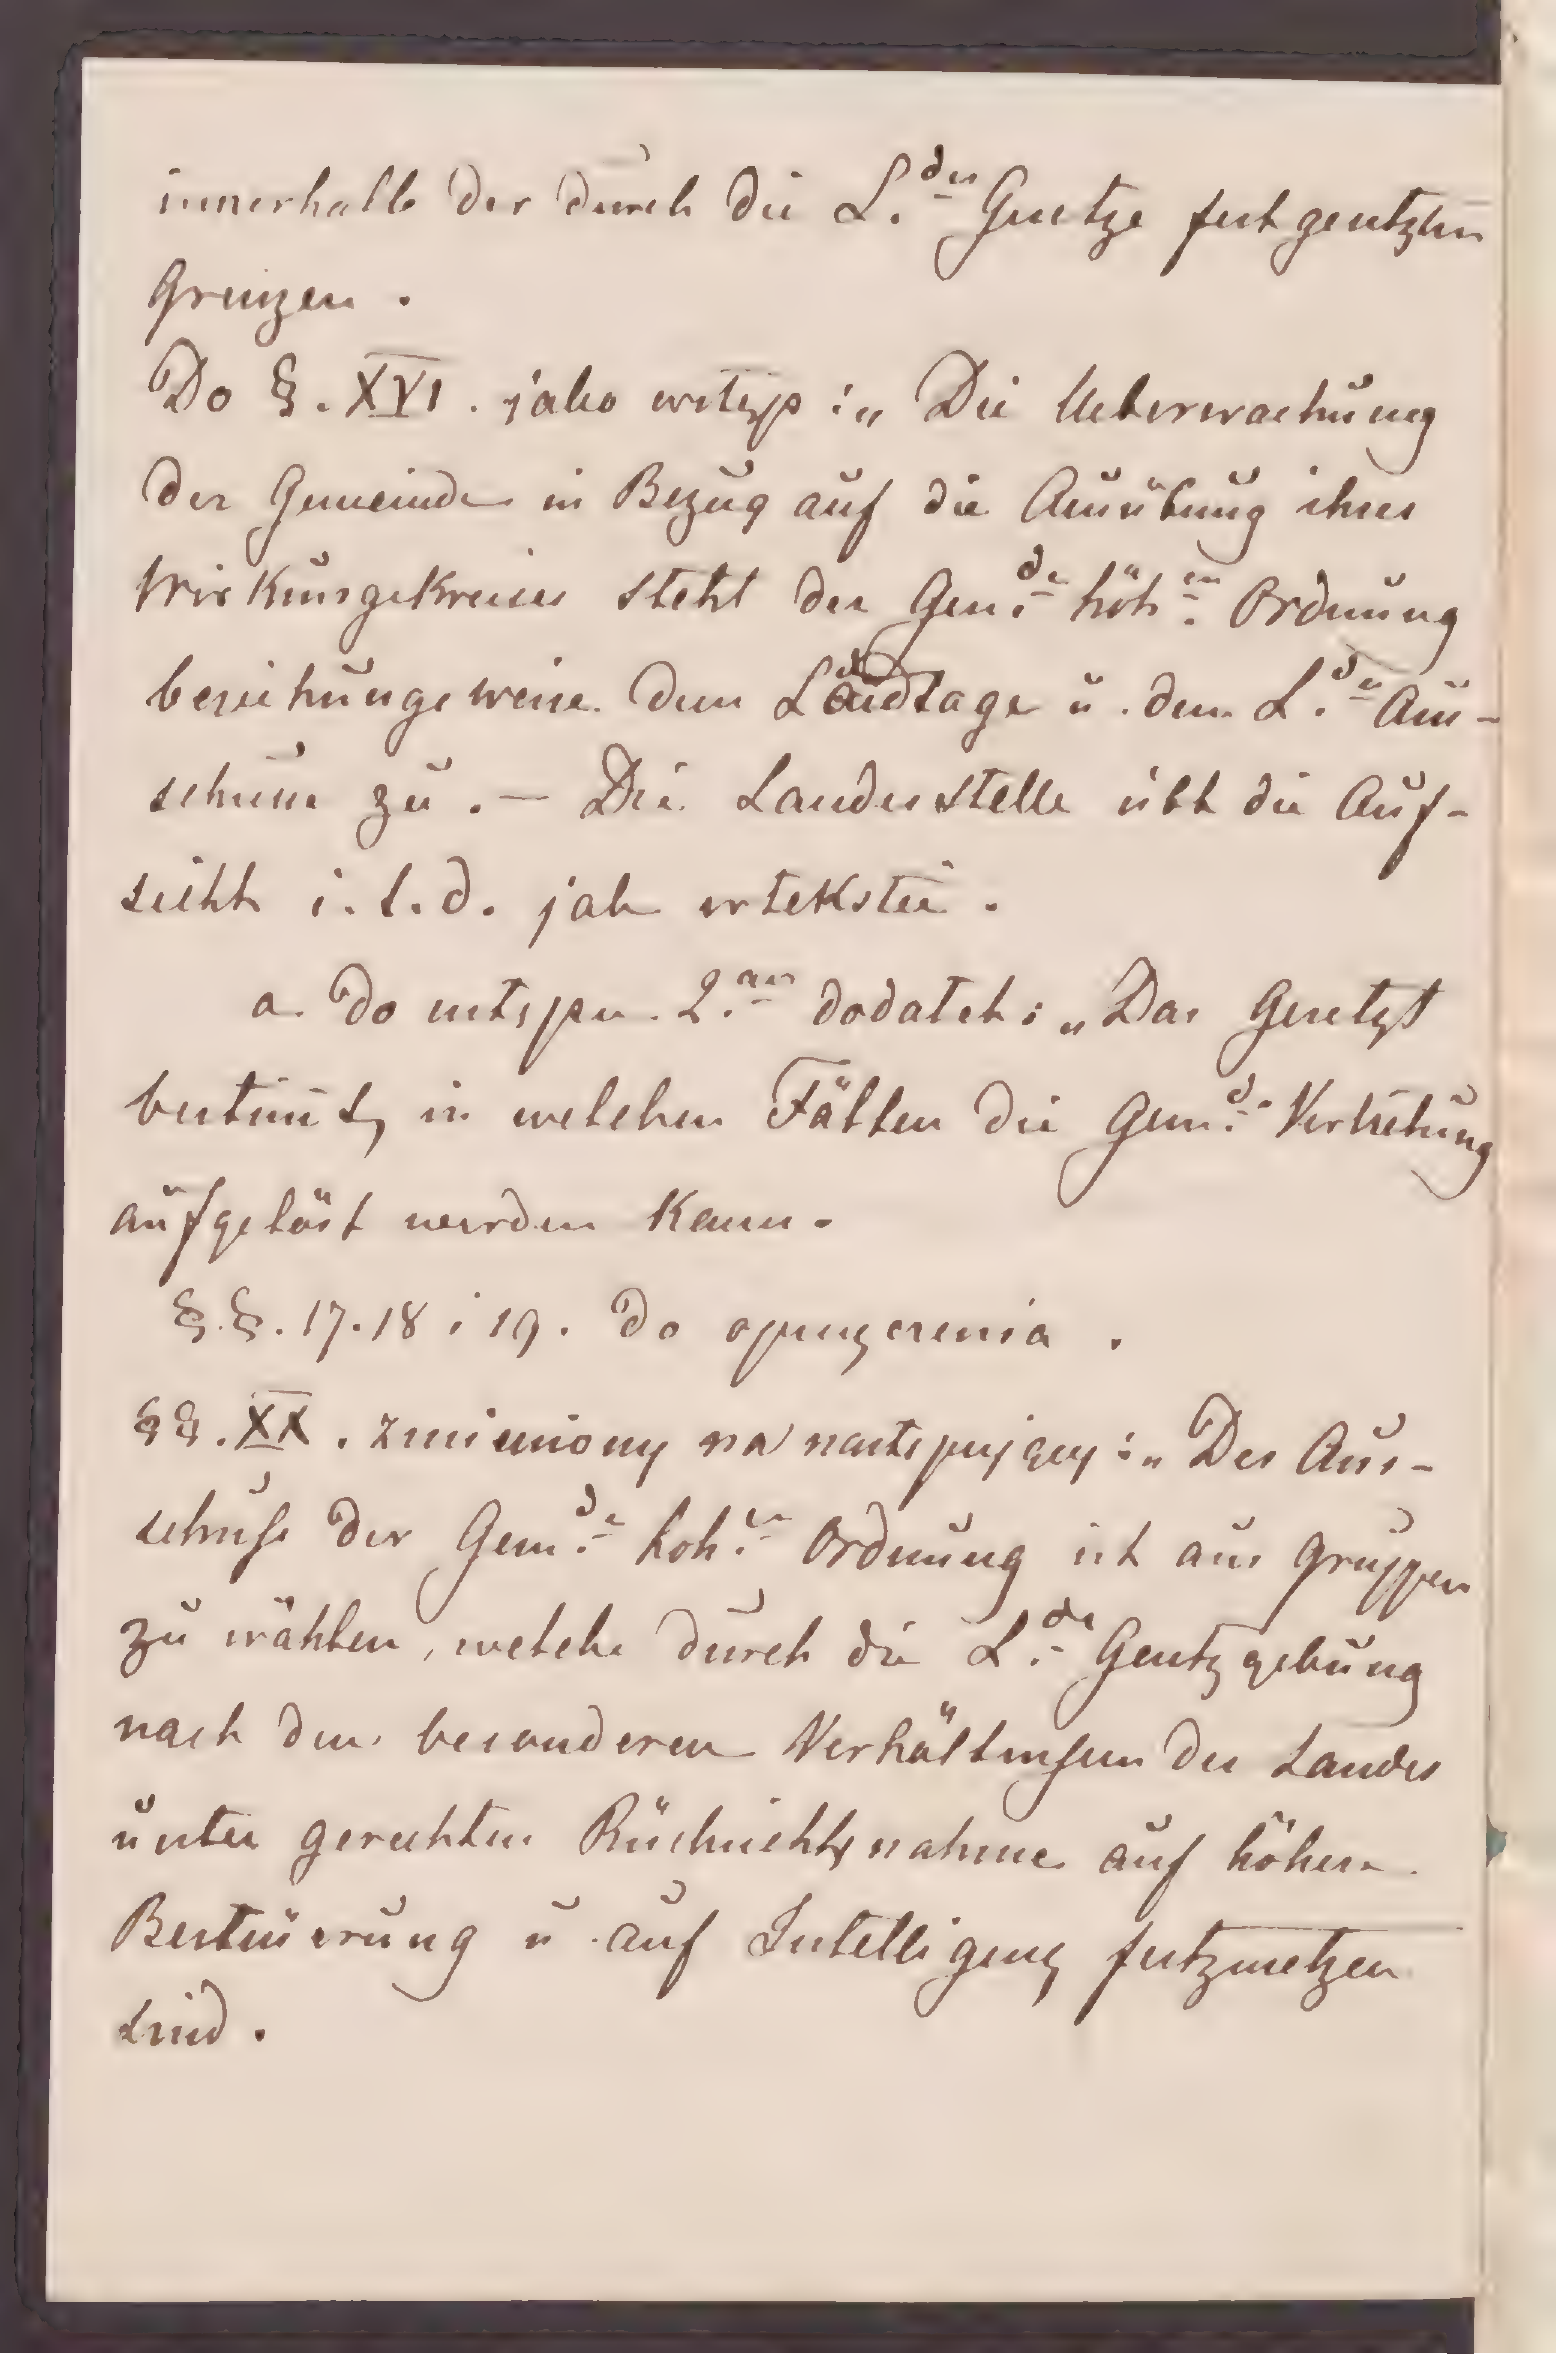 innerhalb der durch die L.des Gesetze festgesetzten
Grenzen.
Do §. XVI. jako wstęp: „Die Ueberwachung
der Gemeinden in Bezug auf die Ausübung ihres
Wirkungskreises steht der Gem.de höh.en Ordnung
beziehungsweise dem Landtage u. dem L.des Aus-
schusse zu. — Die Landesstelle übt die Auf-
sicht i. t. d. jak w tekście.
a do ustępu 2.go dodatek: „Das Gesetz
bestimmt, in welchen Fällen die Gem.de Vertretung
aufgelöst werden kann.
§.§. 17. 18 i 19. do opuszczenia.
§§. XX. zmieniony na następujący: „Der Aus-
schuß der Gem.de höh.en Ordnung ist aus Gruppen
zu wählen, welche durch die L.des Gesetzgebung
nach den besonderen Verhältnißen des Landes
unter gerechter Rücksichtsnahme auf höhere
Besteuerung u. auf Intelligenz festzusetzen
sind.